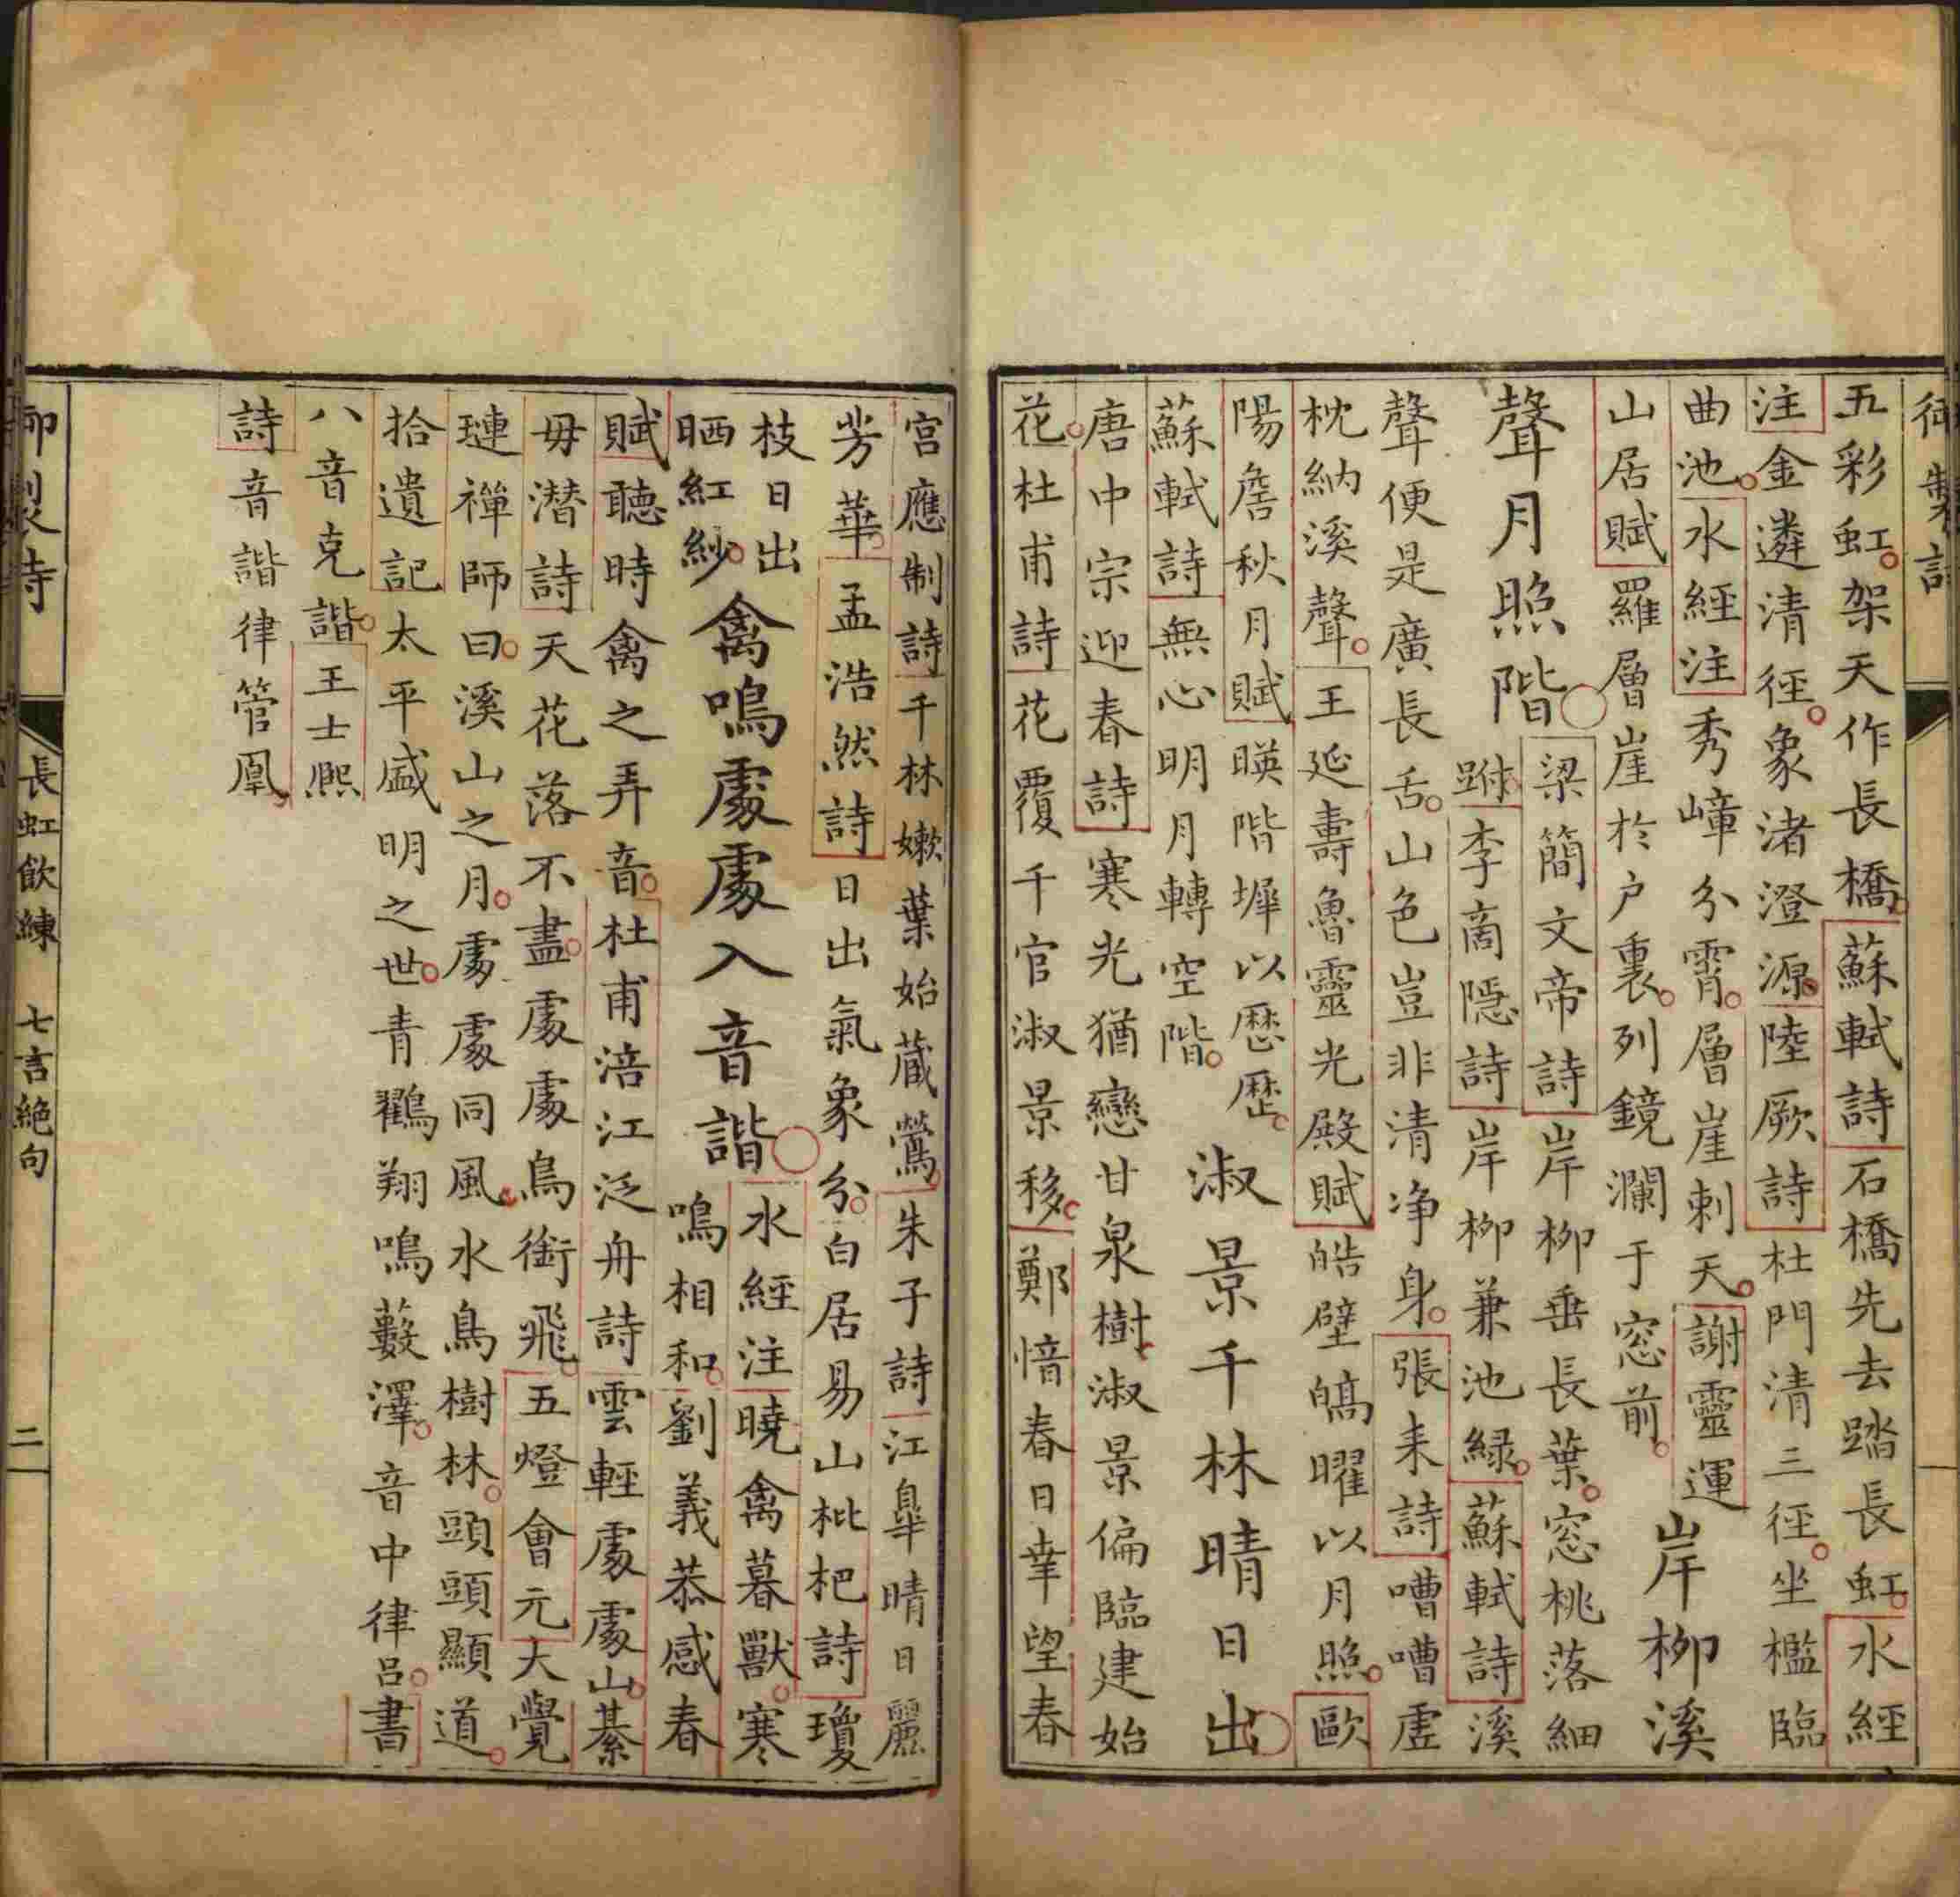 御製詩
五彩虹架天作長橋蘇軾詩石橋先去踏長虹水經
注金遴清徑象渚澄源陸厥詩杜門清三徑坐檻臨
曲池水經注秀嶂分霄層崖刺天謝靈運
山居賦羅層崖於户裏列鏡瀾于窓前
岸柳溪
聲月照階
梁簡文帝詩岸柳垂長葉窓桃落細
跗李商隱詩岸柳兼池緑蘇軾詩溪
聲便是廣長舌山色豈非清浄身張耒詩嘈嘈虛
枕納溪聲王延壽魯靈光殿賦皓壁皜曜以月照歐
陽詹秋月賦暎階墀以歴歴
蘇軾詩無心明月轉空階
淑景千林晴日出
唐中宗迎春詩寒光猶戀甘泉樹淑景偏臨建始
花杜甫詩花覆千官淑景移鄭愔春日幸望春
宮應制詩千林嫩葉始藏鶯朱子詩江皋晴日麗
芳華孟浩然詩日出氣象分白居易山枇杷詩瓊
枝日出
晒紅紗
禽鳴處處入音諧
水經注曉禽暮獸寒
鳴相和劉義恭感春
賦聽時禽之弄音杜甫涪江泛舟詩雲輕處處山綦
毋潜詩天花落不盡處處鳥銜飛五燈會元大覺
璉禪師曰溪山之月處處同風水鳥樹林頭頭顯道
拾遺記太平盛明之世青鸐翔鳴藪澤音中律吕書
八音克諧王士熙
詩音諧律管凰
御製詩 長虹飲練 七言絶句 二